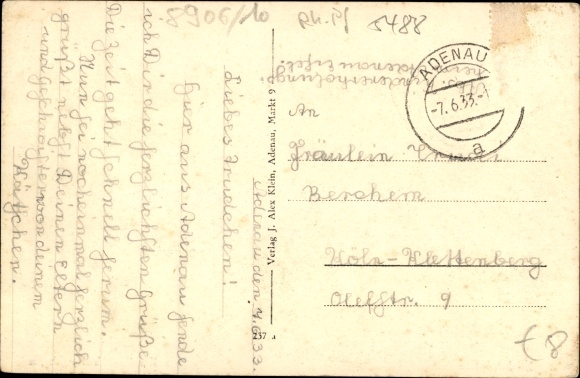 8906/10
5488
Adenau den 7.6.33.
Liebes Trudchen!
Hier aus Adenau sende
ich Dir die herzlichsten Grüße
Die Zeit geht schnell herum.
Nun sei noch einmal herzlich
grüßt nebst Deinen Eltern
und Geschwistern von deinem
Käthchen.
Verlag J. Alex Klein, Adenau, Markt 9
237 a
ADENAU
-7.6.33.-
a
Kindererholungs-
heim
Adenau Eifel
An
Fräulein
Berchem
Köln-Klettenberg
Oelfstr. 9
€8